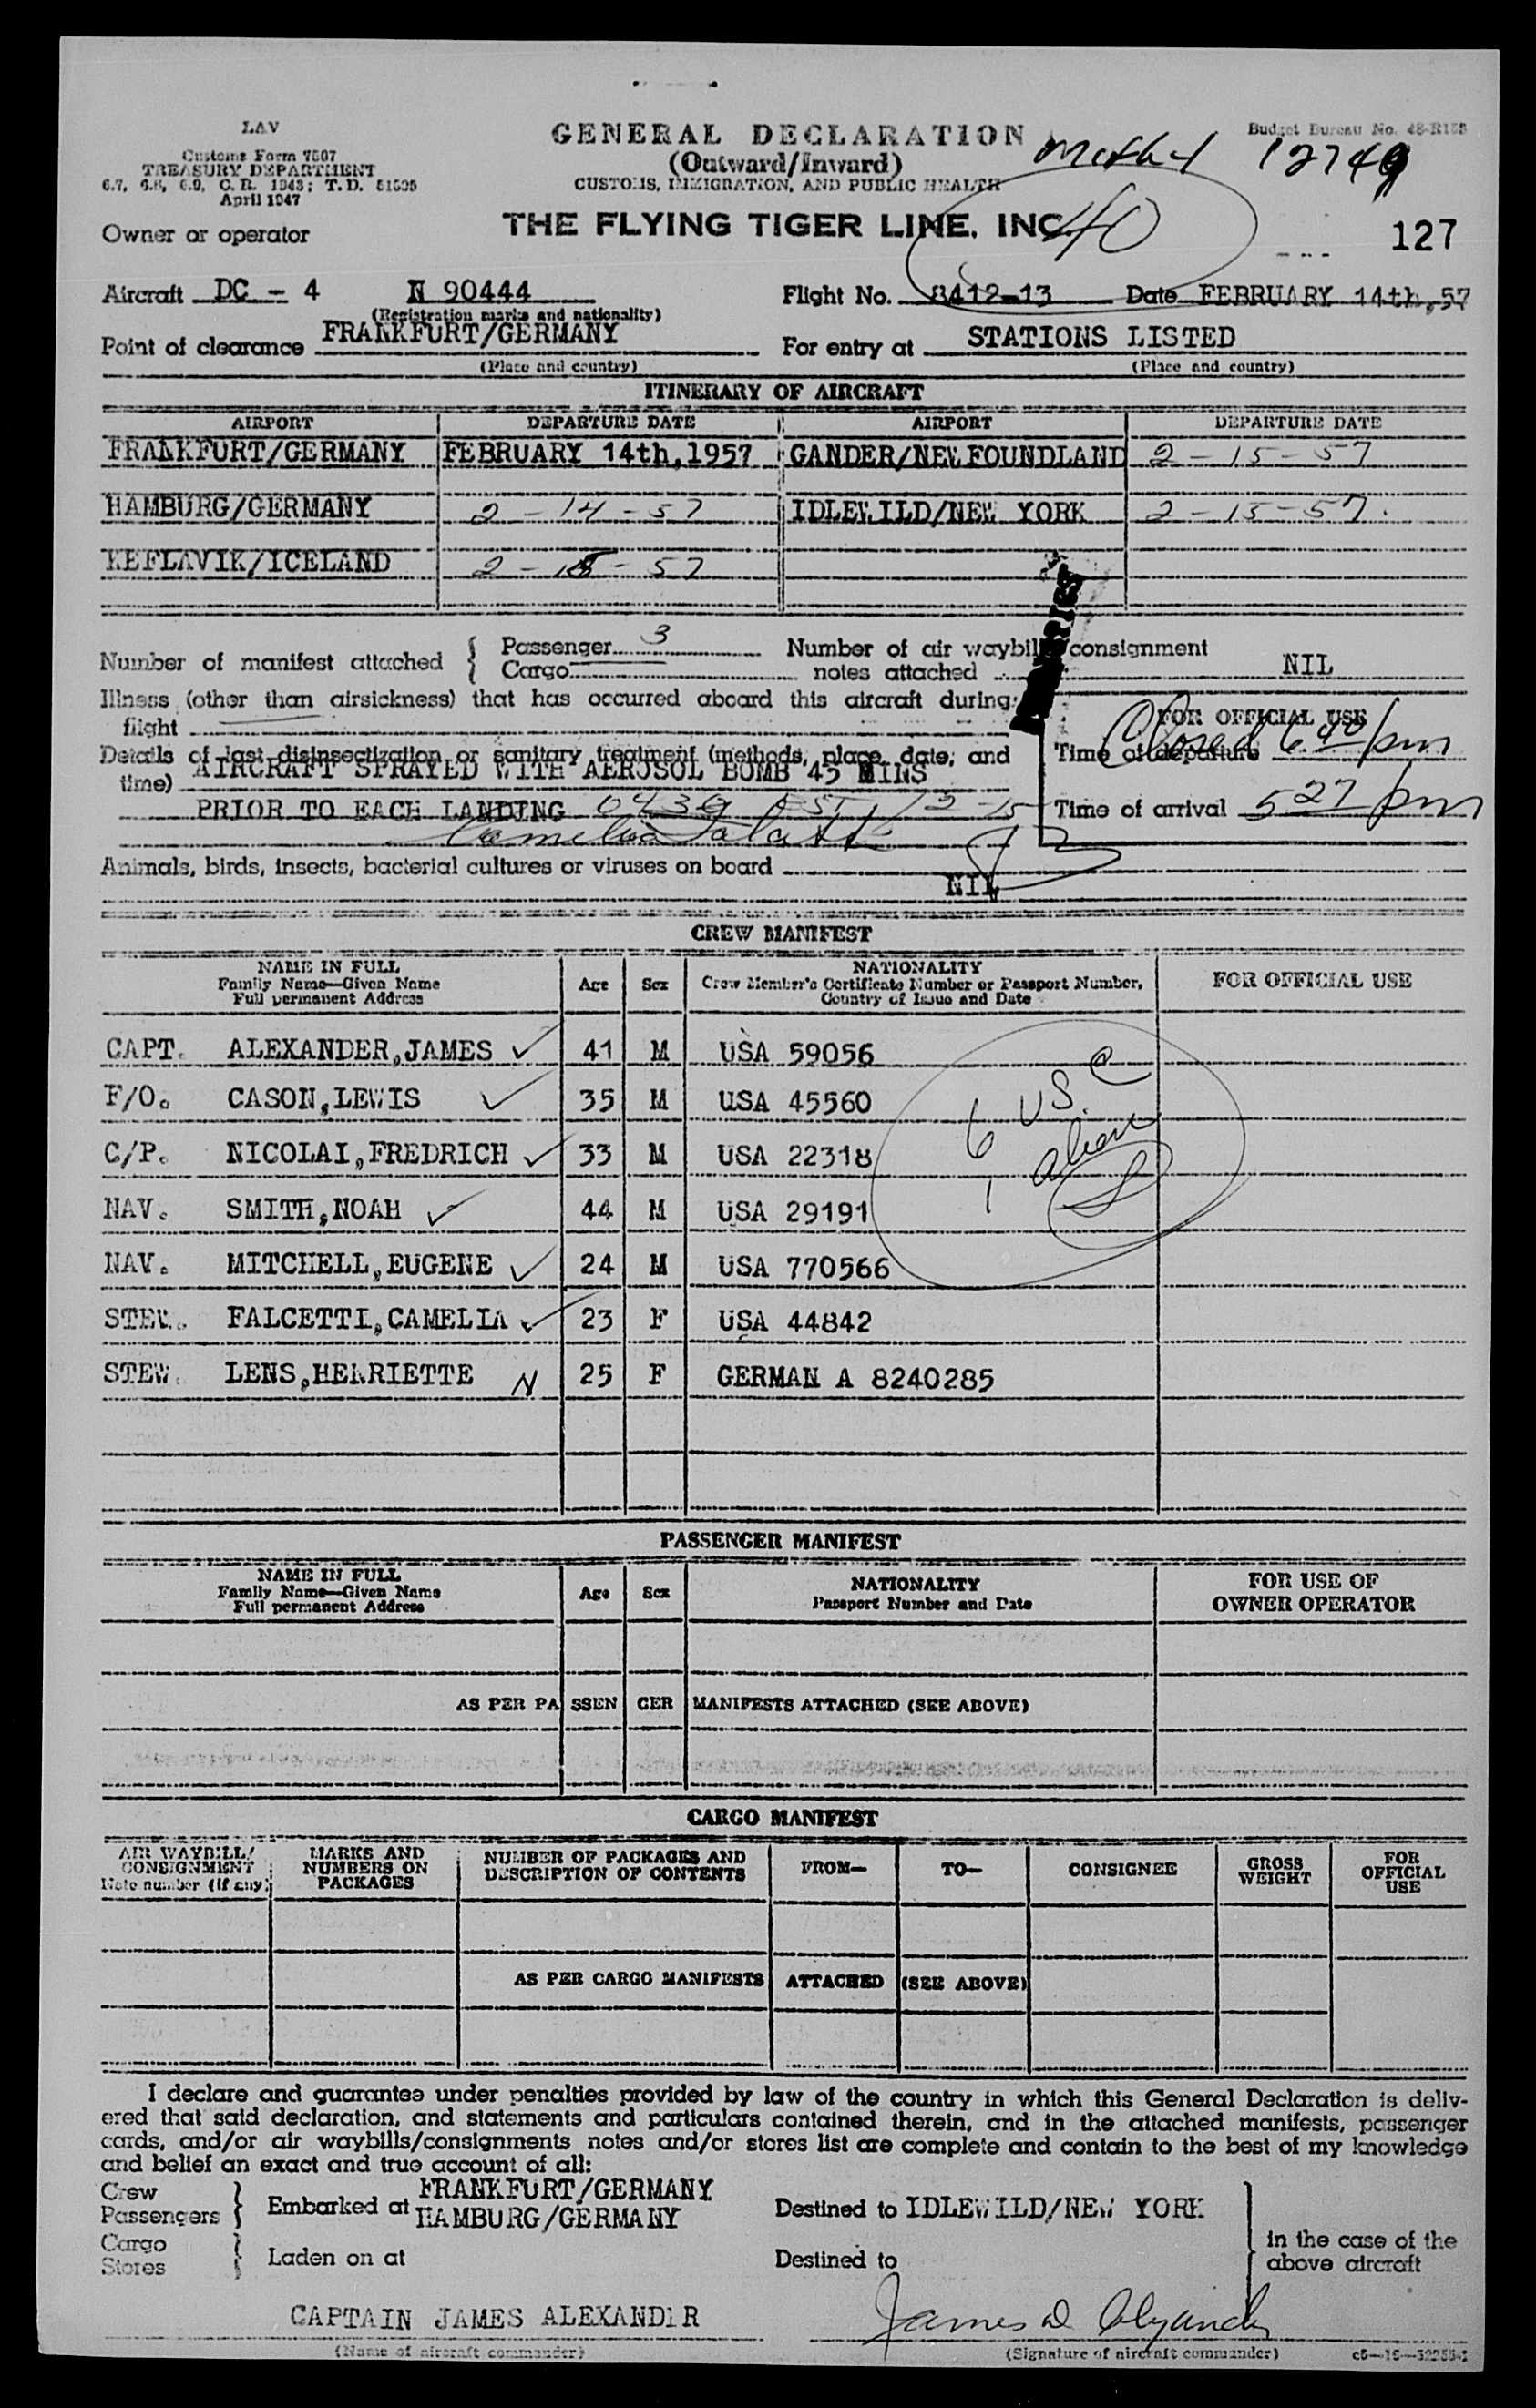 LAV
Customs Form 7507
TREASURY DEPARTMENT
6.7, 6.8, 6.9, C. R. 1943; T. D. 51595
April 1947
Budget Bureau No. 48-R155
GENERAL DECLARATION
(Outward/Inward)
CUSTOMS, IMMIGRATION, AND PUBLIC HEALTH
12749
Owner or operator THE FLYING TIGER LINE, INC. 40 127
Aircraft DC - 4 N 90444 Flight No. 8412-13 Date FEBRUARY 14th, 57
(Registration marks and nationality)
Point of clearance FRANKFURT/GERMANY For entry at STATIONS LISTED
(Place and country) (Place and country)
ITINERARY OF AIRCRAFT
AIRPORT DEPARTURE DATE AIRPORT DEPARTURE DATE
FRANKFURT/GERMANY FEBRUARY 14th,1957 GANDER/NEWFOUNDLAND 2 - 15 - 57
HAMBURG/GERMANY 2 - 14 - 57 IDLEWILD/NEW YORK 2 - 15 - 57.
KEFLAVIK/ICELAND 2 - 15 - 57
Number of manifest attached { Passenger 3 Number of air waybills/consignment
Cargo notes attached NIL
Illness (other than airsickness) that has occurred aboard this aircraft during:
flight
FOR OFFICIAL USE
Details of last disinsectization or sanitary treatment (methods, place, date, and
time) AIRCRAFT SPRAYED WITH AEROSOL BOMB 45 MINS
Time of departure Closed 6 40 pm
PRIOR TO EACH LANDING 0430 EST 2-15
Time of arrival 5 27 pm
Animals, birds, insects, bacterial cultures or viruses on board NIL
CREW MANIFEST
NAME IN FULL
Family Name—Given Name
Full permanent Address
Age Sex
NATIONALITY
Crew Member's Certificate Number or Passport Number,
Country of Issue and Date
FOR OFFICIAL USE
CAPT. ALEXANDER,JAMES ✓ 41 M USA 59056
F/O. CASON,LEWIS ✓ 35 M USA 45560
C/P. NICOLAI,FREDRICH ✓ 33 M USA 22318
NAV. SMITH,NOAH ✓ 44 M USA 29191
NAV. MITCHELL,EUGENE ✓ 24 M USA 770566
STEW. FALCETTI,CAMELIA ✓ 23 F USA 44842
STEW. LENS,HENRIETTE N 25 F GERMAN A 8240285
6 US. C
1 alien
PASSENGER MANIFEST
NAME IN FULL
Family Name—Given Name
Full permanent Address
Age Sex
NATIONALITY
Passport Number and Date
FOR USE OF
OWNER OPERATOR
AS PER PA SSEN GER MANIFESTS ATTACHED (SEE ABOVE)
CARGO MANIFEST
AIR WAYBILL/
CONSIGNMENT
Note number (if any)
MARKS AND
NUMBERS ON
PACKAGES
NUMBER OF PACKAGES AND
DESCRIPTION OF CONTENTS
FROM— TO— CONSIGNEE
GROSS
WEIGHT
FOR
OFFICIAL
USE
AS PER CARGO MANIFESTS ATTACHED (SEE ABOVE)
I declare and guarantee under penalties provided by law of the country in which this General Declaration is deliv-
ered that said declaration, and statements and particulars contained therein, and in the attached manifests, passenger
cards, and/or air waybills/consignments notes and/or stores list are complete and contain to the best of my knowledge
and belief an exact and true account of all:
Crew
Passengers } Embarked at FRANKFURT/GERMANY
HAMBURG/GERMANY
Destined to IDLEWILD/NEW YORK
Cargo
Stores } Laden on at
Destined to
in the case of the
above aircraft
CAPTAIN JAMES ALEXANDER James D Alexander
(Name of aircraft commander) (Signature of aircraft commander)